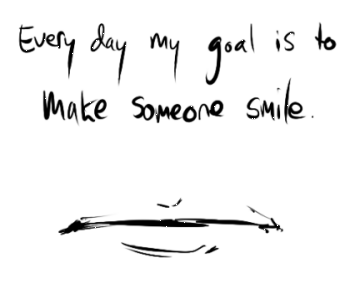 Every day my goal is to
make someone smile.